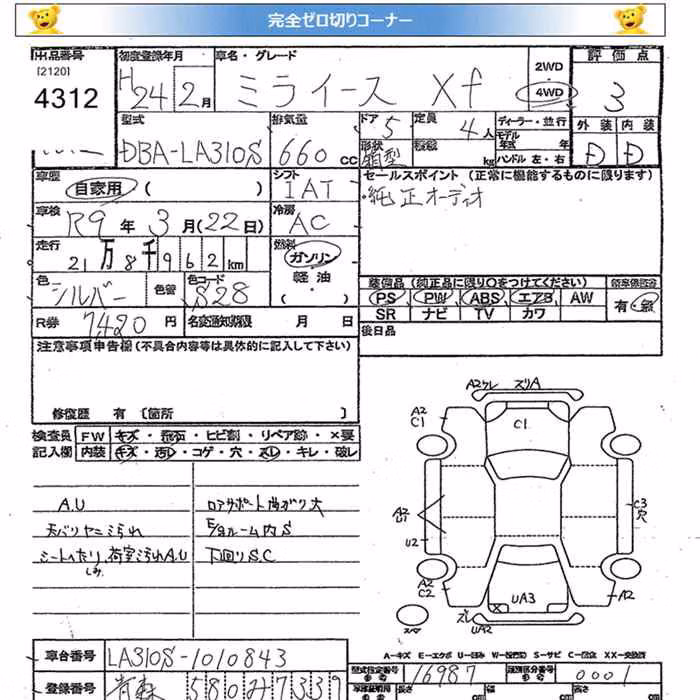 完全ゼロ切りコーナー
出品番号 初度登録年月 車名・グレード 2WD 評価点
[2120]
4312 H24 2月 ミライース Xf 4WD 3
型式 排気量 ドア 5 定員 4人 ディーラー・並行 外装 内装
モデル年式 年
DBA-LA310S 660cc 形状 箱型 積載 kg ハンドル 左・右 D D
車歴 自家用 ( ) シフト IAT セールスポイント (正常に機能するものに限ります)
・純正オーディオ
車検 R9年 3月 (22日) 冷房 AC
走行 21万8千962km 燃料 ガソリン
軽油
・( )
色 シルバー 色替 色コード S28 装備品 (純正品に限り○をつけてください)
PS PW ABS エアB AW 有・無
SR ナビ TV カワ
R券 7420円 名変通知期限 月 日 後日品
注意事項申告欄 (不具合内容等は具体的に記入して下さい)
修復歴 有 [箇所 ]
検査員 FW キズ・飛石・ヒビ割・リペア跡・×要
記入欄 内装 キズ・汚レ・コゲ・穴・スレ・キレ・破レ
A.U
天バリヤニ汚れ
シートへたり、荷室汚れA.U
しみ
ロアサポート曲がり大
E/gルーム内S
下回りS.C
A2ワレ ズリA
A2
C1
C1
A2
U1
U2
C3
穴
A2
C2
UA3
A2
スペア
ズレ
UA2
A-キズ E-エクボ U-凹み W-(補修跡) S-サビ C-腐食 XX-交換済
車台番号 LA310S-1010843
型式指定番号 16987 類別区分番号 0001
登録番号 青森 580み7339
長さ cm 幅 cm 高さ cm